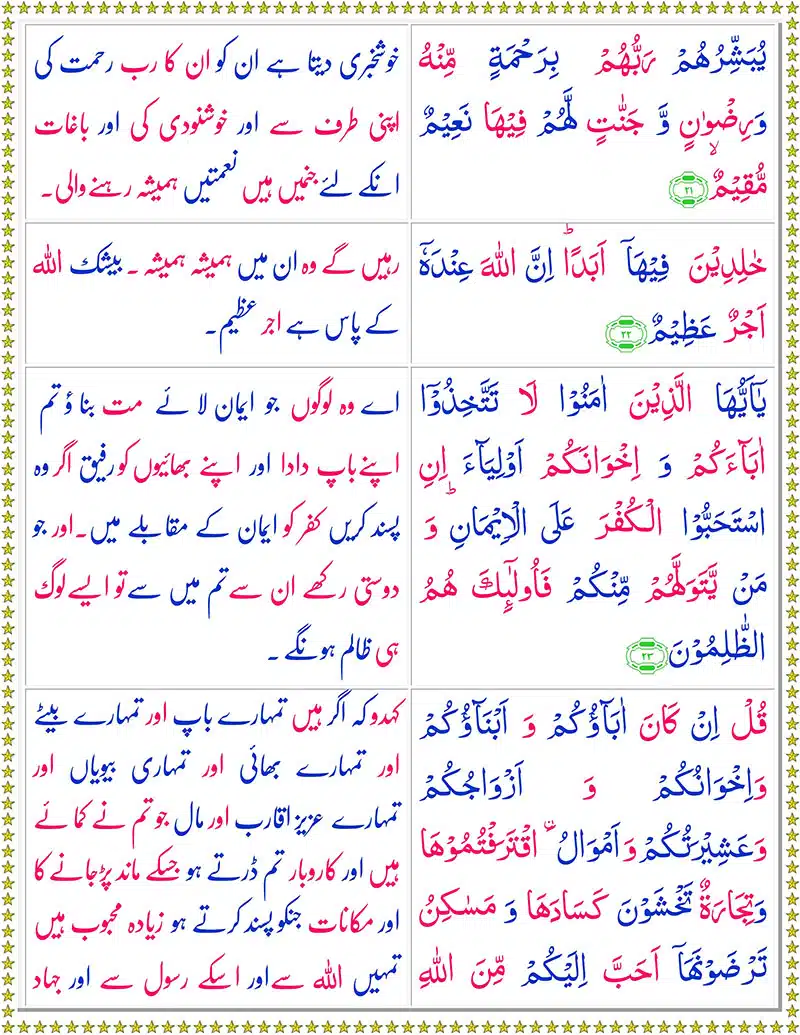 يُبَشِّرُهُمْ رَبُّهُمْ بِرَحْمَةٍ مِّنْهُ
وَرِضْوٰنٍ وَّ جَنّٰتٍ لَّهُمْ فِيْهَا نَعِيْمٌ
مُّقِيْمٌۙ ٢١
خوشخبری دیتا ہے ان کو ان کا رب رحمت کی
اپنی طرف سے اور خوشنودی کی اور باغات
انکے لئے جنمیں ہیں نعمتیں ہمیشہ رہنے والی۔
خٰلِدِيْنَ فِيْهَاۤ اَبَدًاؕ اِنَّ اللّٰهَ عِنْدَهٗۤ
اَجْرٌ عَظِيْمٌ ٢٢
رہیں گے وہ ان میں ہمیشہ ہمیشہ ۔ بیشک اللہ
کے پاس ہے اجر عظیم۔
يٰۤاَيُّهَا الَّذِيْنَ اٰمَنُوْا لَا تَتَّخِذُوْۤا
اٰبَآءَكُمْ وَ اِخْوَانَكُمْ اَوْلِيَآءَ اِنِ
اسْتَحَبُّوا الْكُفْرَ عَلَى الْاِيْمَانِؕ وَ
مَنْ يَّتَوَلَّهُمْ مِّنْكُمْ فَاُولٰٓئِكَ هُمُ
الظّٰلِمُوْنَ ٢٣
اے وہ لوگوں جو ایمان لائے مت بناؤ تم
اپنے باپ دادا اور اپنے بھائیوں کو رفیق اگر وہ
پسند کریں کفر کو ایمان کے مقابلے میں۔ اور جو
دوستی رکھے ان سے تم میں سے تو ایسے لوگ
ہی ظالم ہونگے ۔
قُلْ اِنْ كَانَ اٰبَآؤُكُمْ وَ اَبْنَآؤُكُمْ
وَاِخْوَانُكُمْ وَ اَزْوَاجُكُمْ
وَعَشِيْرَتُكُمْ وَ اَمْوَالُ ۨاقْتَرَفْتُمُوْهَا
وَتِجَارَةٌ تَخْشَوْنَ كَسَادَهَا وَ مَسٰكِنُ
تَرْضَوْنَهَاۤ اَحَبَّ اِلَيْكُمْ مِّنَ اللّٰهِ
کہدو کہ اگر ہیں تمہارے باپ اور تمہارے بیٹے
اور تمہارے بھائی اور تمہاری بیویاں اور
تمہارے عزیز اقارب اور مال جو تم نے کمائے
ہیں اور کاروبار تم ڈرتے ہو جسکے ماند پڑجانے کا
اور مکانات جنکو پسند کرتے ہو زیادہ محبوب ہیں
تمہیں اللہ سے اور اسکے رسول سے اور جہاد